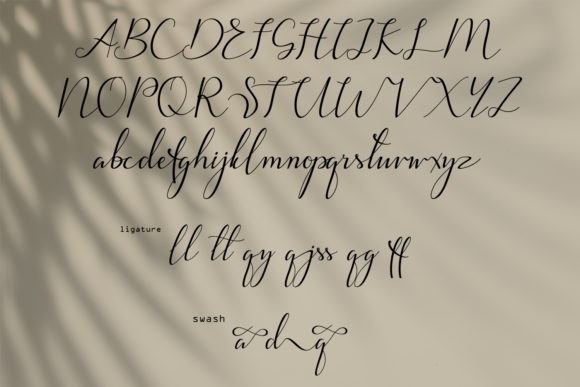 ABCDEFGHIJKLM
NOPQRSTUVWXYZ
abcdefghijklmnopqrstuvwxyz
ligature
ll tt qy qjss qg ff
swash
a d q